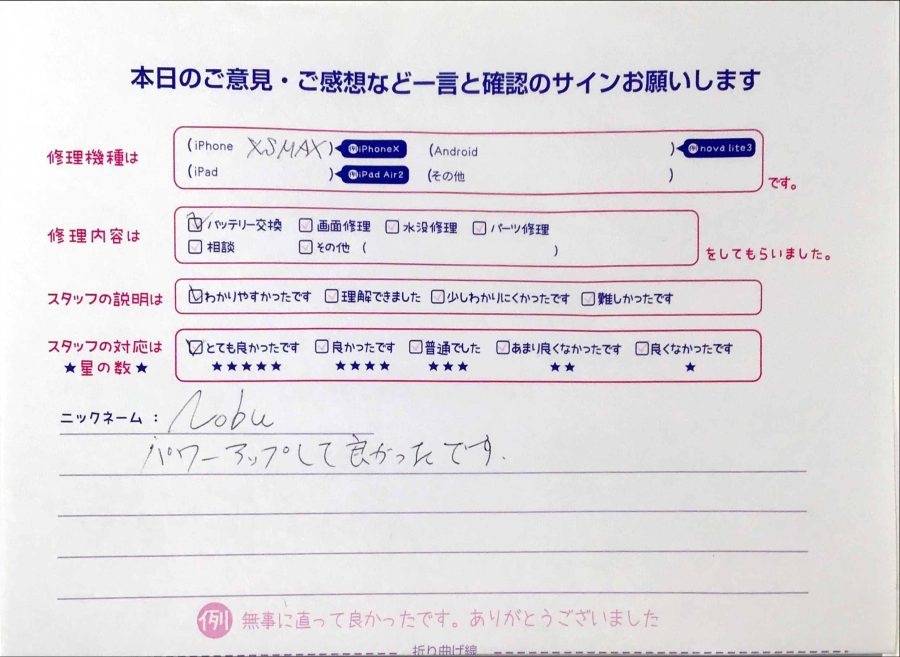 本日のご意見・ご感想など一言と確認のサインお願いします
修理機種は (iPhone XSMAX) 例iPhoneX (Android ) 例nova lite3
(iPad ) 例iPad Air2 (その他 ) です。
修理内容は バッテリー交換 画面修理 水没修理 パーツ修理
相談 その他 ( ) をしてもらいました。
スタッフの説明は わかりやすかったです 理解できました 少しわかりにくかったです 難しかったです
スタッフの対応は とても良かったです 良かったです 普通でした あまり良くなかったです 良くなかったです
★星の数★ ★★★★★ ★★★★ ★★★ ★★ ★
ニックネーム: Nobu
パワーアップして良かったです.
例 無事に直って良かったです。ありがとうございました
折り曲げ線